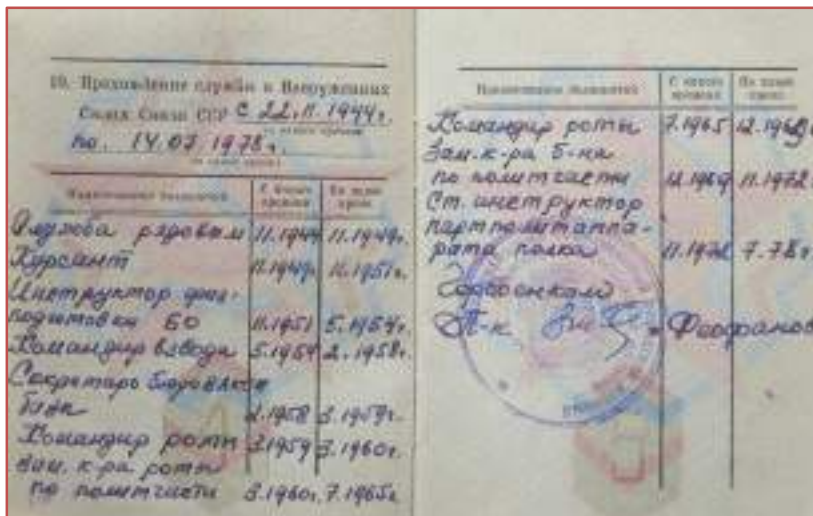 10. Прохождение службы в Вооруженных
Силах Союза ССР с 22.11.1944г.
по 14.07.1978г.
Наименование должностей С какого времени По какое время
Служба рядовым 11.1944 11.1949г.
Курсант 11.1949г. 11.1951г.
Инструктор физ-
подготовки БО 11.1951 5.1954г.
Командир взвода 5.1954 2.1958г.
Секретарь бюро ВЛКСМ
б-на 2.1958 3.1959г.
Командир роты 3.1959 3.1960г.
Зам. к-ра роты
по политчасти 3.1960г. 7.1965г.
Наименование должностей С какого времени По какое время
Командир роты 7.1965 12.1969
Зам. к-ра б-на
по политчасти 12.1969 11.1972г.
Ст. инструктор
партполитаппа-
рата полка 11.1972 7.78г.
П-к Феофанов